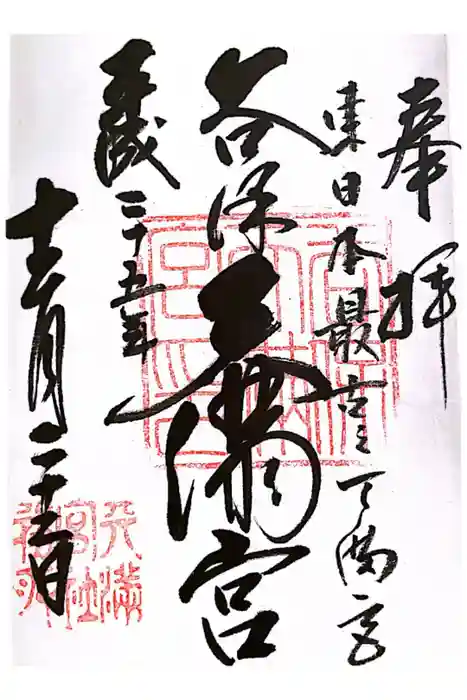 奉拝
東日本最古天満宮
谷保天満宮
平成二十五年
十二月二十三日